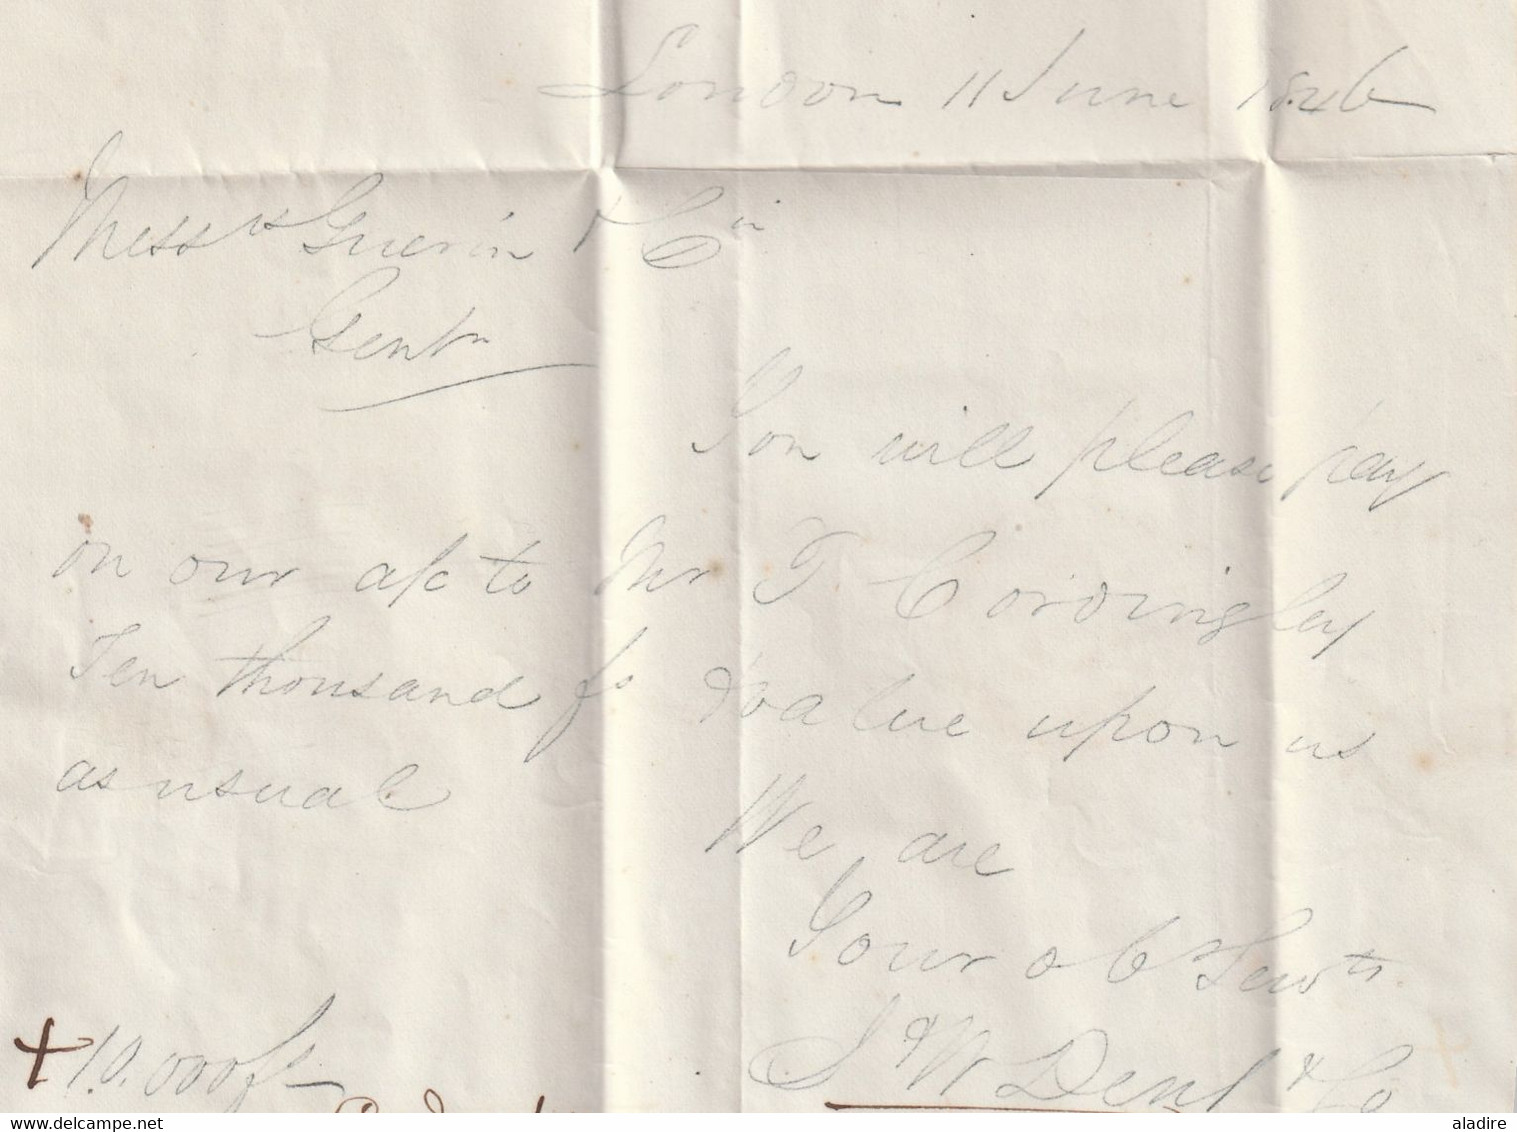 London 11 June 1846
Mess rs Guerin & C ie
Gent n
You will please pay
on our a/c to Mr T. Cordingley
Ten thousand fs & value upon us
as usual
We are
Your ob t Serv ts
+ 10.000 fs
J & W Dent & Co
aladire